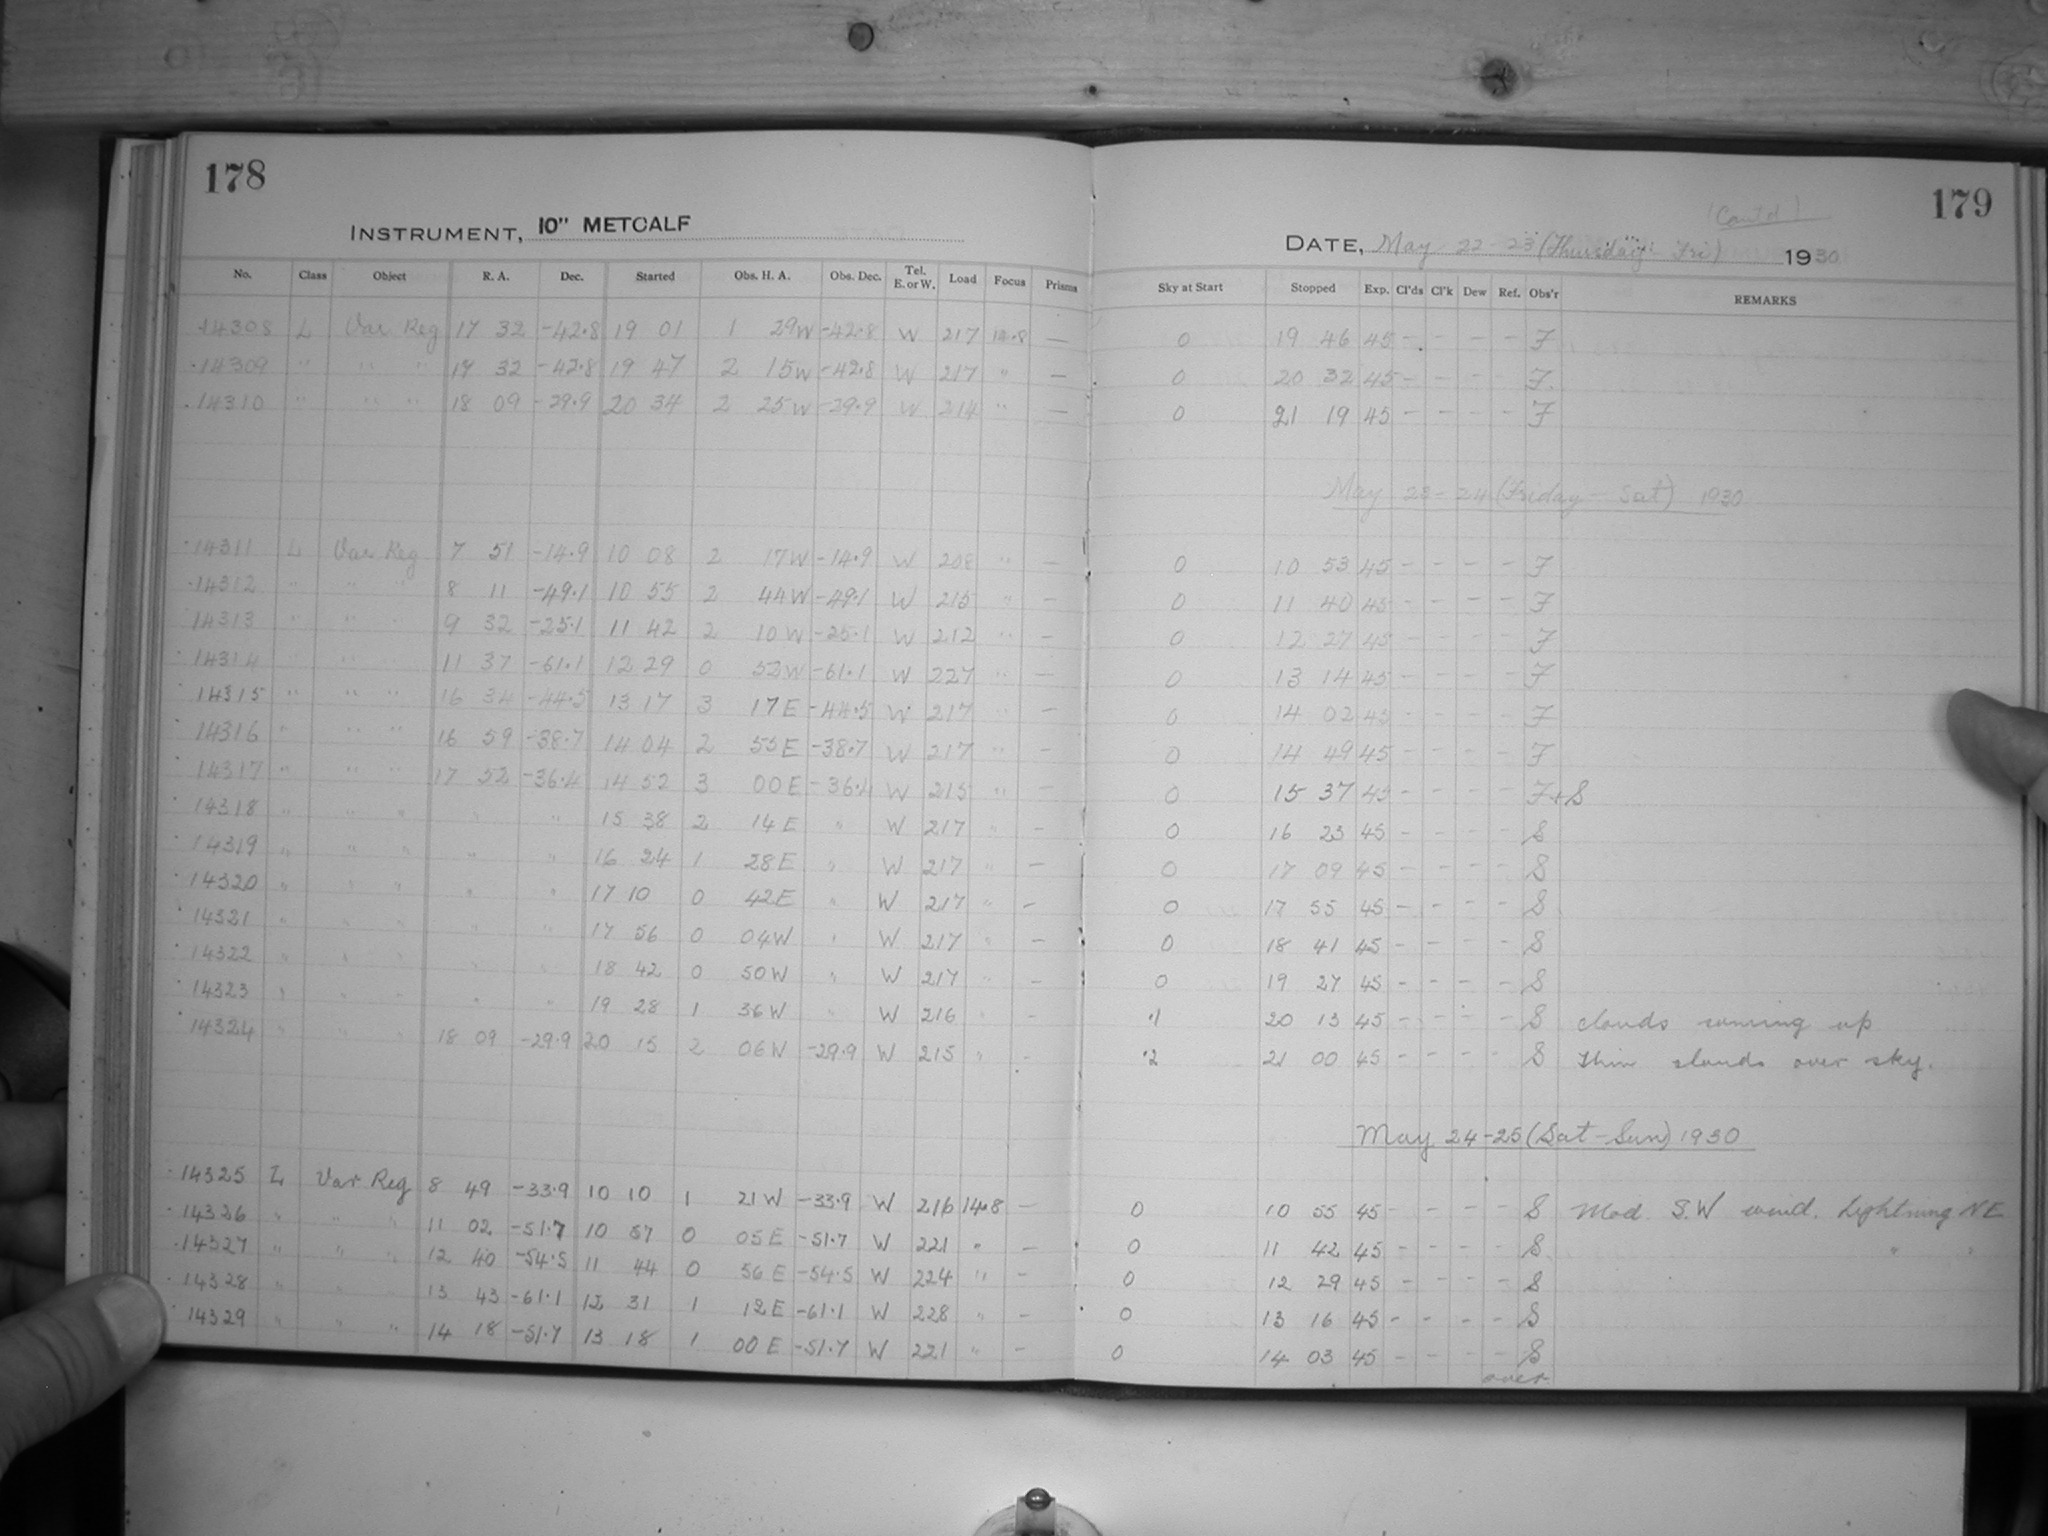 178
INSTRUMENT, 10" METCALF
No. Class Object R. A. Dec. Started Obs. H. A. Obs. Dec. Tel. E. or W. Load Focus Prisms
14308 L Var Reg 17 32 -42.8 19 01 1 29W -42.8 W 217 14.8 —
14309 " " " 17 32 -42.8 19 47 2 15W -42.8 W 217 " —
14310 " " " 18 09 -29.9 20 34 2 25W -29.9 W 214 " —
14311 L Var Reg 7 51 -14.9 10 08 2 17W -14.9 W 208 " —
14312 " " " 8 11 -49.1 10 55 2 44W -49.1 W 215 " —
14313 " " " 9 32 -25.1 11 42 2 10W -25.1 W 212 " —
14314 " " " 11 37 -61.1 12 29 0 53W -61.1 W 227 " —
14315 " " " 16 34 -44.5 13 17 3 17E -44.5 W 217 " —
14316 " " " 16 59 -38.7 14 04 2 55E -38.7 W 217 " —
14317 " " " 17 52 -36.4 14 52 3 00E -36.4 W 215 " —
14318 " " " " " 15 38 2 14E " W 217 " —
14319 " " " " " 16 24 1 28E " W 217 " —
14320 " " " " " 17 10 0 42E " W 217 " —
14321 " " " " " 17 56 0 04W " W 217 " —
14322 " " " " " 18 42 0 50W " W 217 " —
14323 " " " " " 19 28 1 36W " W 216 " —
14324 " " " 18 09 -29.9 20 15 2 06W -29.9 W 215 " —
14325 L Var Reg 8 49 -33.9 10 10 1 21W -33.9 W 216 14.8 —
14326 " " " 11 02 -51.7 10 57 0 05E -51.7 W 221 " —
14327 " " " 12 40 -54.5 11 44 0 56E -54.5 W 224 " —
14328 " " " 13 43 -61.1 12 31 1 12E -61.1 W 228 " —
14329 " " " 14 18 -51.7 13 18 1 00E -51.7 W 221 " —
179
(Contd)
DATE, May 22-23 (Thursday - Fri) 1930
Sky at Start Stopped Exp. Cl'ds Cl'k Dew Ref. Obs'r REMARKS
0 19 46 45 - - - - F
0 20 32 45 - - - - F.
0 21 19 45 - - - - F
May 23-24 (Friday - Sat) 1930
0 10 53 45 - - - - F
0 11 40 45 - - - - F
0 12 27 45 - - - - F
0 13 14 45 - - - - F
0 14 02 45 - - - - F
0 14 49 45 - - - - F
0 15 37 45 - - - - F+S
0 16 23 45 - - - - S
0 17 09 45 - - - - S
0 17 55 45 - - - - S
0 18 41 45 - - - - S
0 19 27 45 - - - - S
.1 20 13 45 - - - - S clouds coming up
.2 21 00 45 - - - - S thin clouds over sky.
May 24-25 (Sat-Sun) 1930
0 10 55 45 - - - - S Mod. S.W wind. Lightning NE
0 11 42 45 - - - - S " "
0 12 29 45 - - - - S
0 13 16 45 - - - - S
0 14 03 45 - - - - S
over